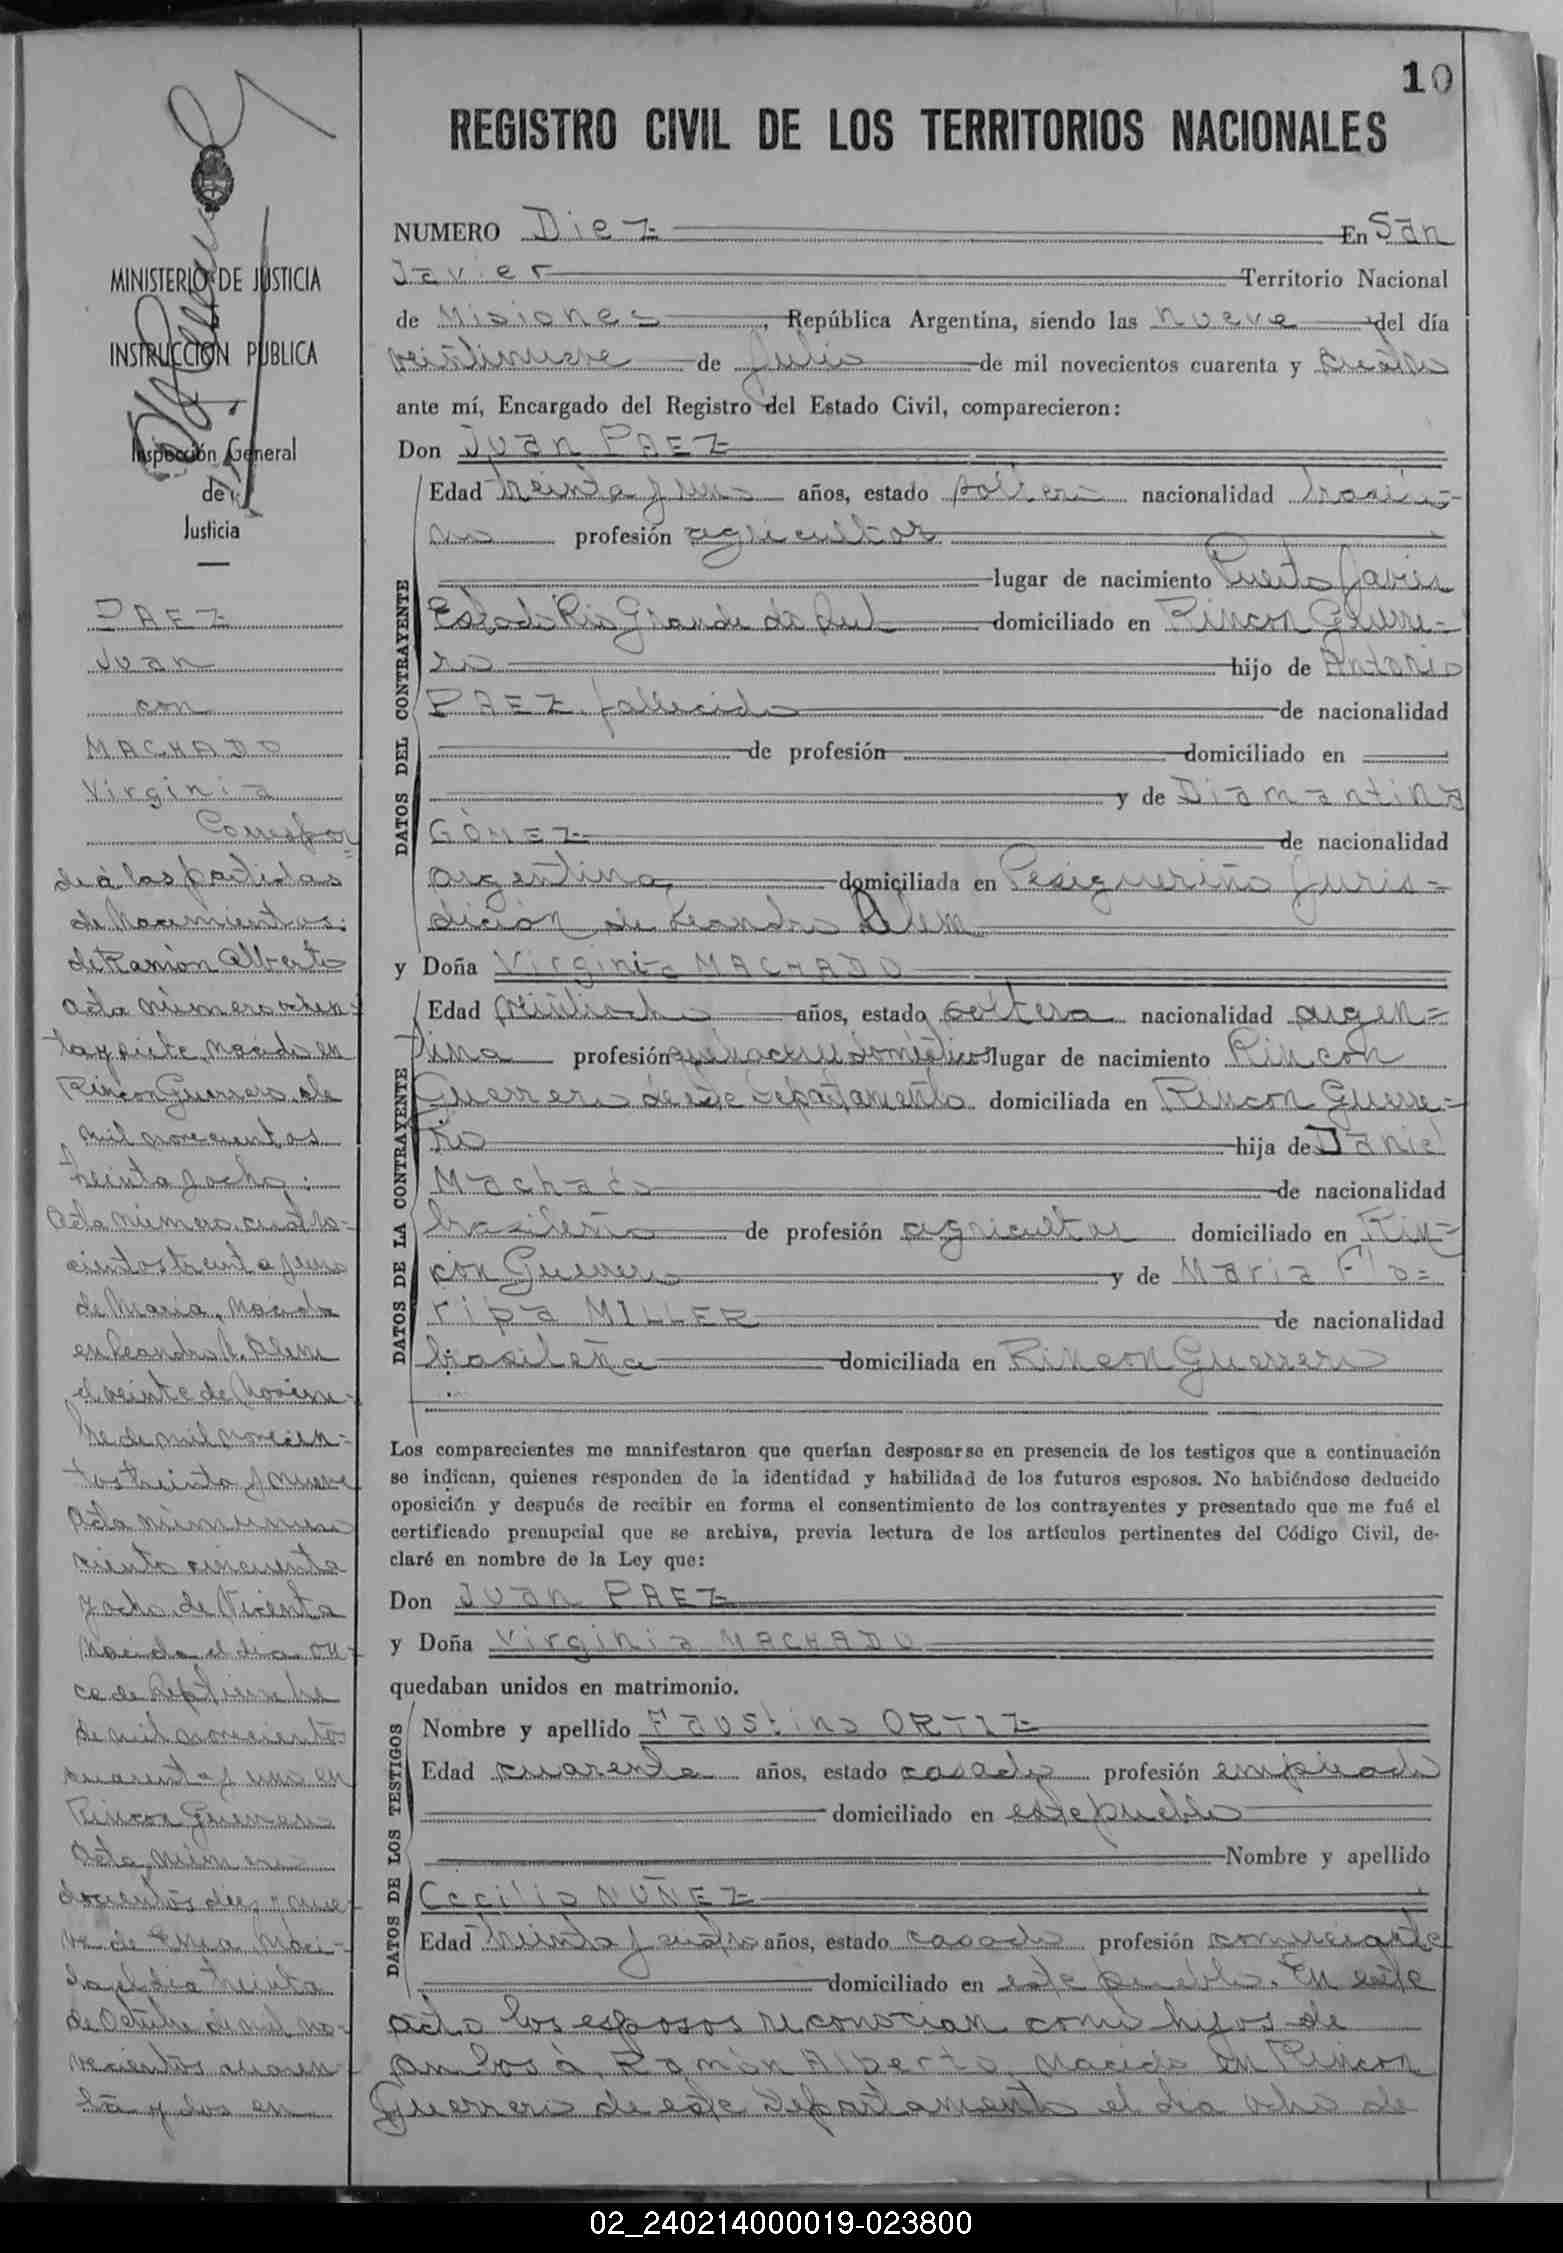 10
REGISTRO CIVIL DE LOS TERRITORIOS NACIONALES
MINISTERIO DE JUSTICIA
E
INSTRUCCION PUBLICA
Inspección General
de
Justicia
PAEZ
Juan
con
MACHADO
Virginia
Correspon
de á las partidas
de Nacimientos:
de Ramón Alberto
acta número ochen=
ta y siete, nacido en
Rincón Guerrero de
mil novecientos
treinta y ocho;
acta número cuatro=
cientos treinta y uno
de María, nacida
en Leandro N. Alem
el veinte de Noviem-
bre de mil novecien=
tos treinta y nueve
acta número
ciento cincuenta
y ocho de Vicenta
nacida el día on-
ce de Septiembre
de mil novecientos
cuarenta y uno en
Rincon Guerrero
acta número
doscientos diez y nue-
ve de Elsa naci-
da el día treinta
de Octubre de mil no-
vecientos cuaren-
ta y dos en
NUMERO Diez En San
Javier Territorio Nacional
de Misiones, República Argentina, siendo las nueve del día
veintinueve de Julio de mil novecientos cuarenta y cuatro
ante mí, Encargado del Registro del Estado Civil, comparecieron:
Don Juan PAEZ
DATOS DEL CONTRAYENTE
Edad treinta y uno años, estado soltero nacionalidad brasile=
no profesión agricultor
lugar de nacimiento Puerto Javier
Estado Rio Grande do Sul domiciliado en Rincon Guerre=
ro hijo de Antonio
PAEZ, fallecido de nacionalidad
de profesión domiciliado en
y de Diamantina
GÓMEZ de nacionalidad
argentina domiciliada en Pesigueriño Juris=
dición de Leandro Alem
y Doña Virginia MACHADO
DATOS DE LA CONTRAYENTE
Edad veintiocho años, estado soltera nacionalidad argen=
tina profesión quehaceres domésticos lugar de nacimiento Rincon
Guerrero de este Departamento domiciliada en Rincon Guerre=
ro hija de Daniel
Machado de nacionalidad
brasileño de profesión agricultor domiciliado en Rin=
cón Guerrero y de Maria Flo=
ripa MILLER de nacionalidad
brasileña domiciliada en Rincon Guerrero
Los comparecientes me manifestaron que querían desposarse en presencia de los testigos que a continuación
se indican, quienes responden de la identidad y habilidad de los futuros esposos. No habiéndose deducido
oposición y después de recibir en forma el consentimiento de los contrayentes y presentado que me fué el
certificado prenupcial que se archiva, previa lectura de los artículos pertinentes del Código Civil, de-
claré en nombre de la Ley que:
Don Juan PAEZ
y Doña Virginia MACHADO
quedaban unidos en matrimonio.
DATOS DE LOS TESTIGOS
Nombre y apellido Faustino ORTIZ
Edad cuarenta años, estado casado profesión empleado
domiciliado en este pueblo
Nombre y apellido
Cecilio NUÑEZ
Edad treinta y cuatro años, estado casado profesión comerciante
domiciliado en este pueblo. En este
acto los esposos reconocian como hijos de
ambos á Ramón Alberto, nacido en Rincon
Guerrero de este Departamento el día ocho de
02_240214000019-023800